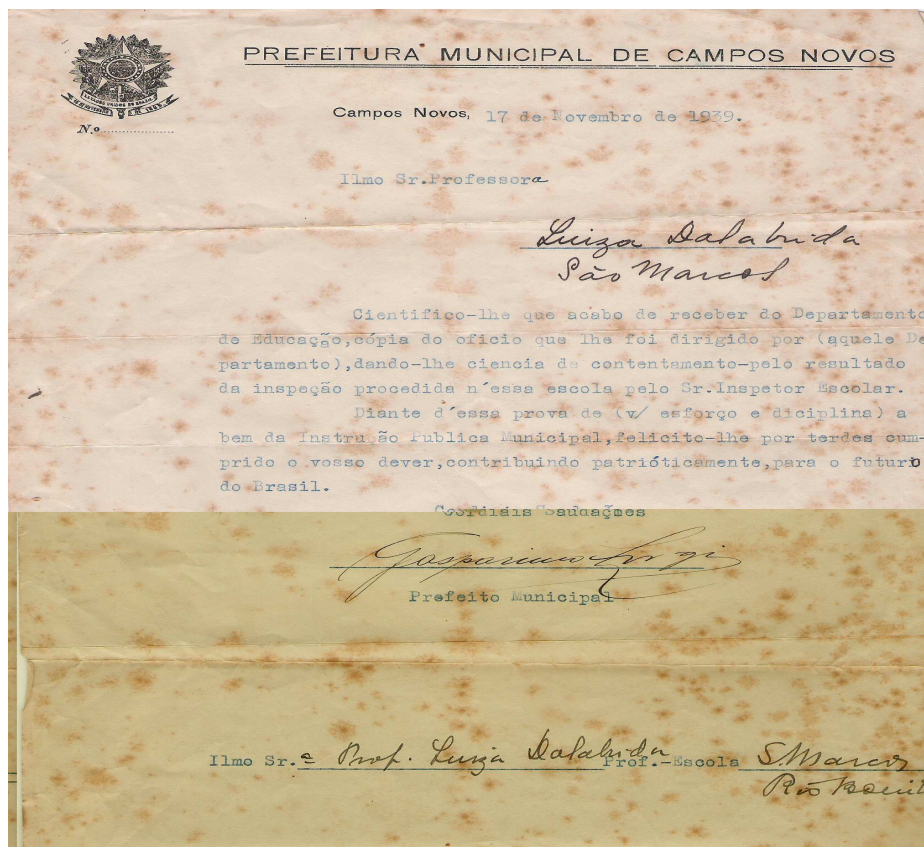 PREFEITURA MUNICIPAL DE CAMPOS NOVOS
N.o
Campos Novos, 17 de Novembro de 1939.
Ilmo Sr.Professora
Luiza Dalabrida
São Marcos
Cientifico-lhe que acabo de receber do Departamento
de Educação,cópia do oficio que lhe foi dirigido por (aquele De
partamento),dando-lhe ciencia de contentamento-pelo resultado
da inspeção procedida n´essa escola pelo Sr.Inspetor Escolar.
Diante d´essa prova de (v/ esforço e diciplina) a
bem da Instrução Publica Municipal,felicito-lhe por terdes cum-
prido o vosso dever,contribuindo patrióticamente,para o futuro
do Brasil.
Cordiais Saudações
Prefeito Municipal
Ilmo Sr.a Prof. Luiza Dalabrida Prof.-Escola S. Marcos
Rio